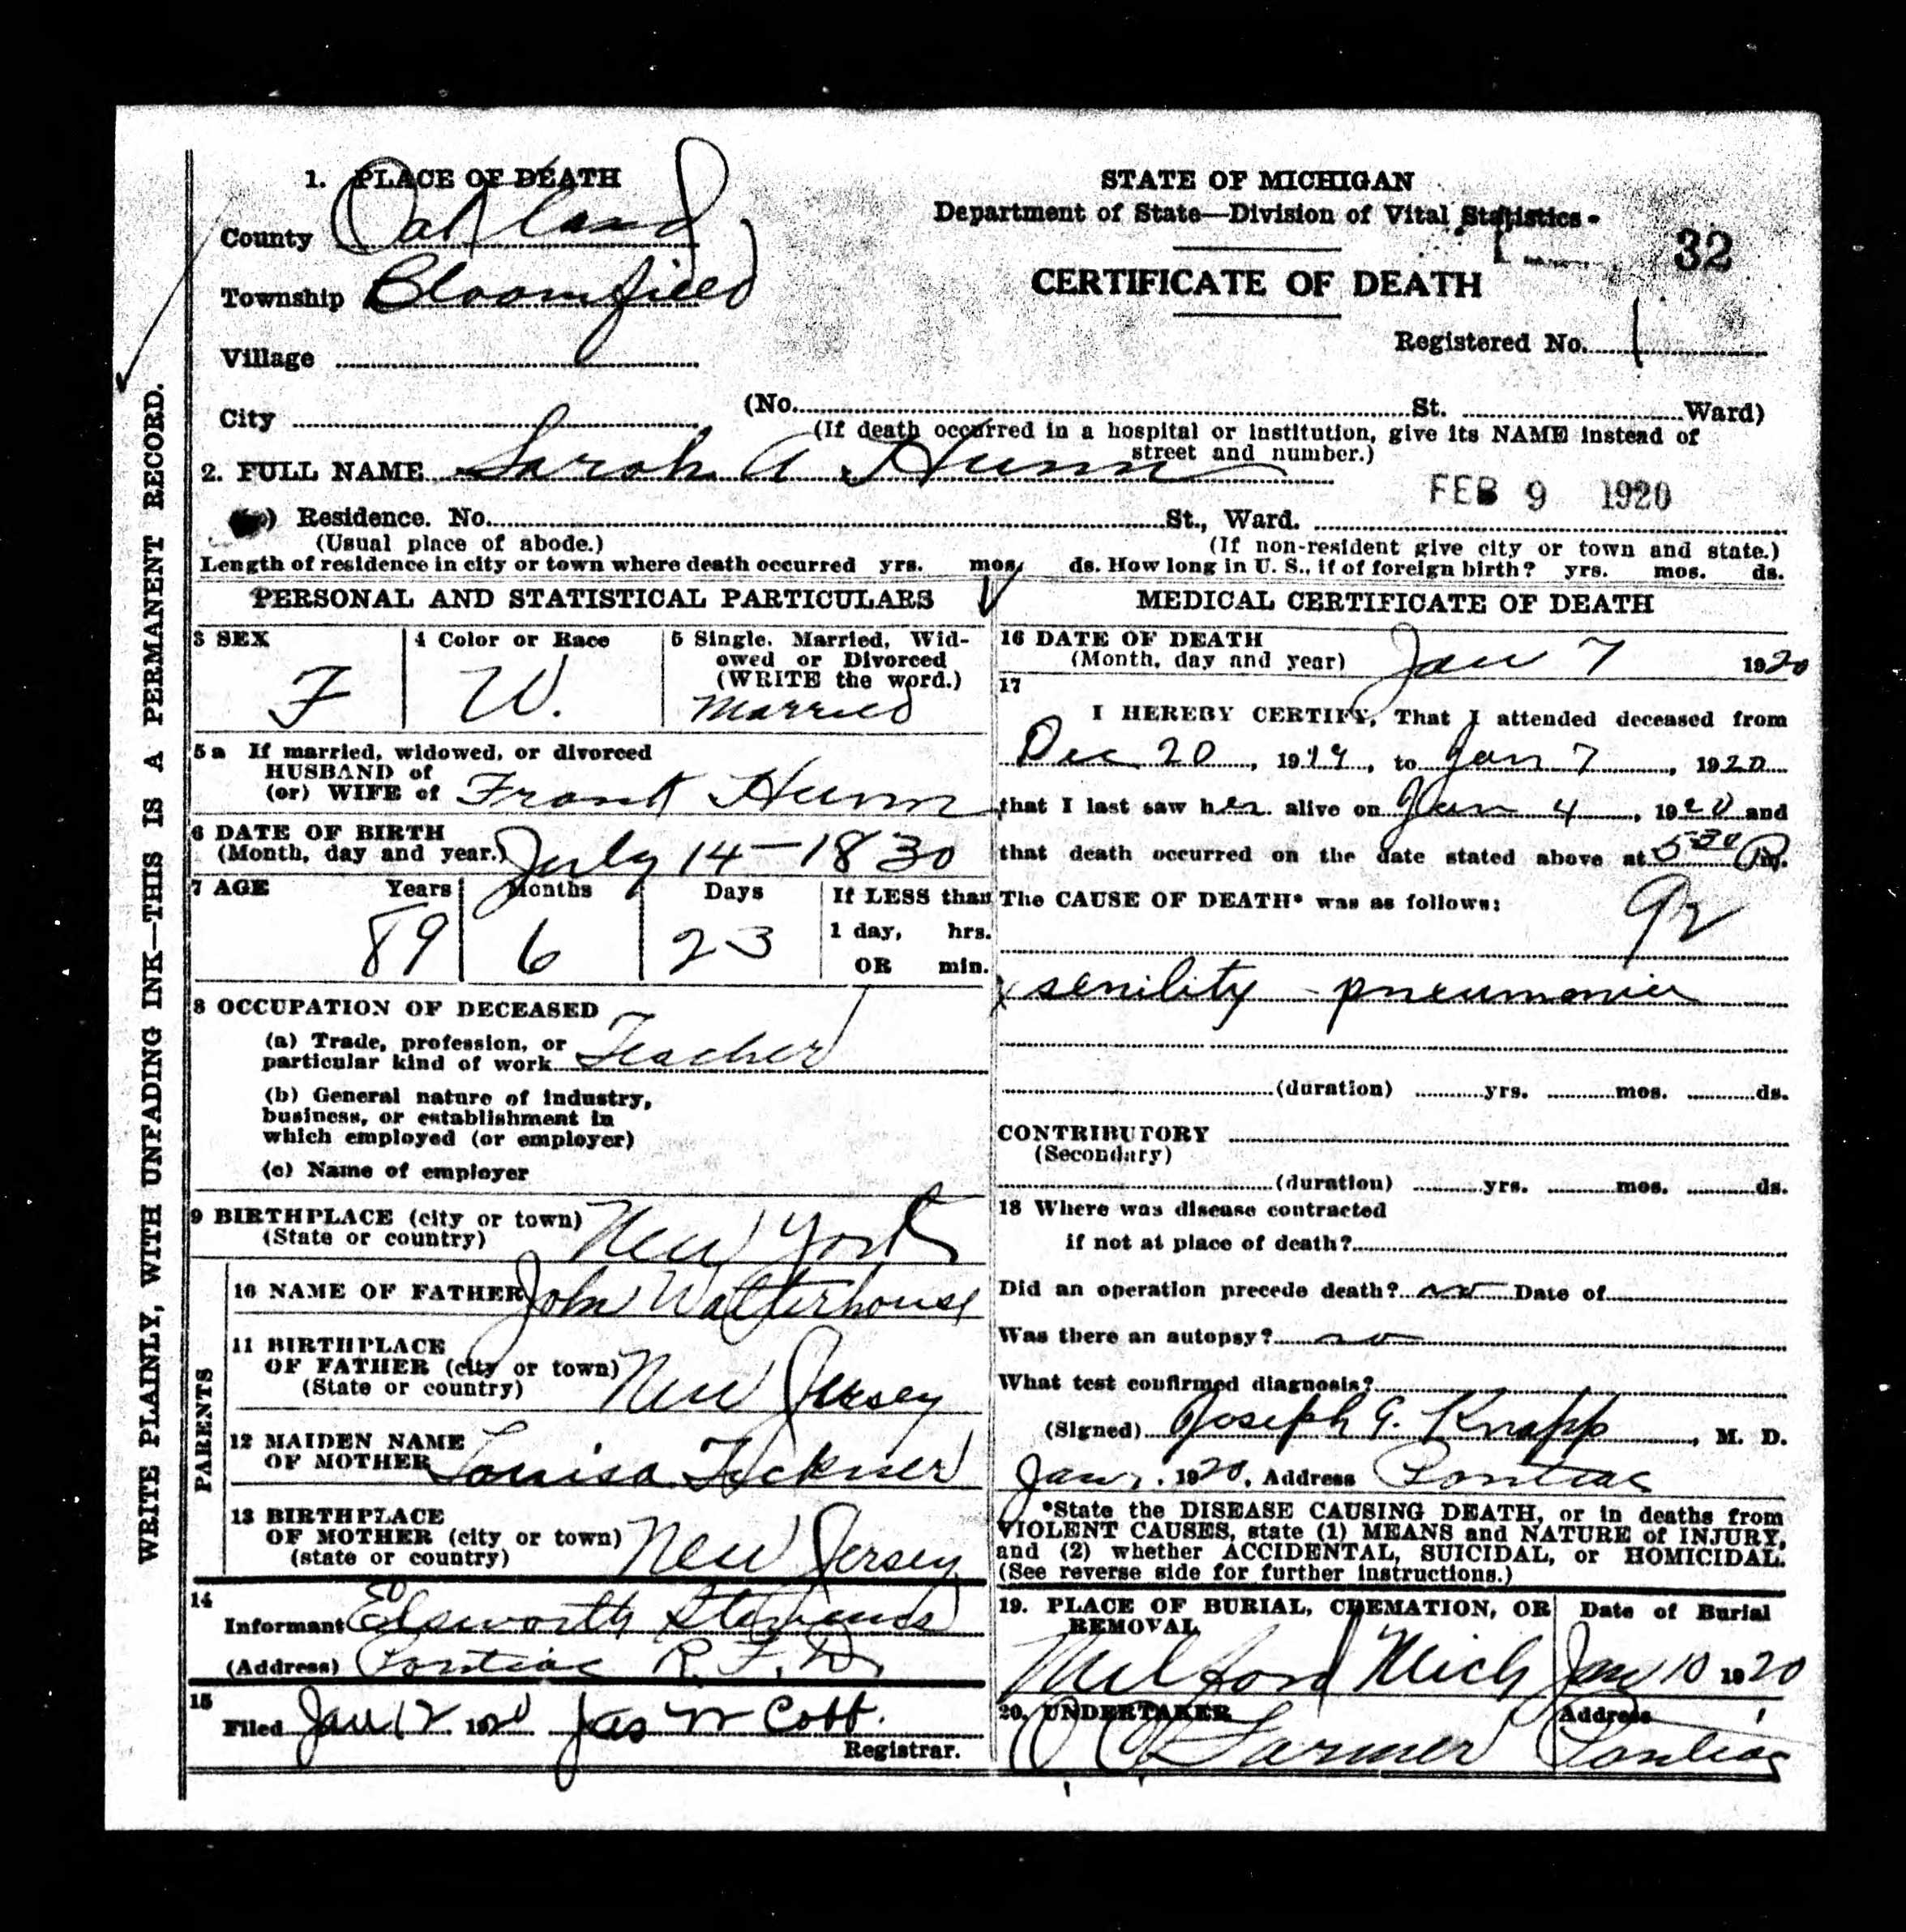 1. PLACE OF DEATH
County Oakland
Township Bloomfield
Village
City
STATE OF MICHIGAN
Department of State—Division of Vital Statistics
32
CERTIFICATE OF DEATH
Registered No. 1
(No. St. Ward)
(If death occurred in a hospital or institution, give its NAME instead of
street and number.)
2. FULL NAME Sarah A. Hunn
FEB 9 1920
) Residence. No. St., Ward.
(Usual place of abode.)
(If non-resident give city or town and state.)
Length of residence in city or town where death occurred yrs. mos. ds. How long in U. S., if of foreign birth? yrs. mos. ds.
WRITE PLAINLY, WITH UNFADING INK—THIS IS A PERMANENT RECORD.
PERSONAL AND STATISTICAL PARTICULARS
3 SEX
F
4 Color or Race
W.
5 Single, Married, Wid-
owed or Divorced
(WRITE the word.)
Married
5a If married, widowed, or divorced
HUSBAND of
(or) WIFE of Frank Hunn
6 DATE OF BIRTH
(Month, day and year.) July 14-1830
7 AGE Years Months Days
89 6 23
If LESS than
1 day, hrs.
OR min.
8 OCCUPATION OF DECEASED
(a) Trade, profession, or
particular kind of work Teacher
(b) General nature of industry,
business, or establishment in
which employed (or employer)
(c) Name of employer
9 BIRTHPLACE (city or town)
(State or country) New York
PARENTS
10 NAME OF FATHER John Watterhouse
11 BIRTHPLACE
OF FATHER (city or town)
(State or country) New Jersey
12 MAIDEN NAME
OF MOTHER Louisa
13 BIRTHPLACE
OF MOTHER (city or town)
(state or country) New Jersey
14
Informant Elsworth
(Address) Pontiac R. F. D.
15
Filed Jan 12 1920 Jas W Cobb.
Registrar.
MEDICAL CERTIFICATE OF DEATH
16 DATE OF DEATH
(Month, day and year) Jan 7 1920
17
I HEREBY CERTIFY, That I attended deceased from
Dec 20, 1919, to Jan 7, 1920
that I last saw her alive on Jan 4, 1920 and
that death occurred on the date stated above at 5 30 P.m.
The CAUSE OF DEATH* was as follows:
92
senility - pneumonia
(duration) yrs. mos. ds.
CONTRIBUTORY
(Secondary)
(duration) yrs. mos. ds.
18 Where was disease contracted
if not at place of death?
Did an operation precede death? no Date of
Was there an autopsy? no
What test confirmed diagnosis?
(Signed) Joseph G. Knapp, M. D.
Jan 1920. Address Pontiac
*State the DISEASE CAUSING DEATH, or in deaths from
VIOLENT CAUSES, state (1) MEANS and NATURE of INJURY,
and (2) whether ACCIDENTAL, SUICIDAL, or HOMICIDAL.
(See reverse side for further instructions.)
19. PLACE OF BURIAL, CREMATION, OR
REMOVAL
Milford Mich
Date of Burial
Jan 10 1920
20. UNDERTAKER
Farmer
Address
Pontiac